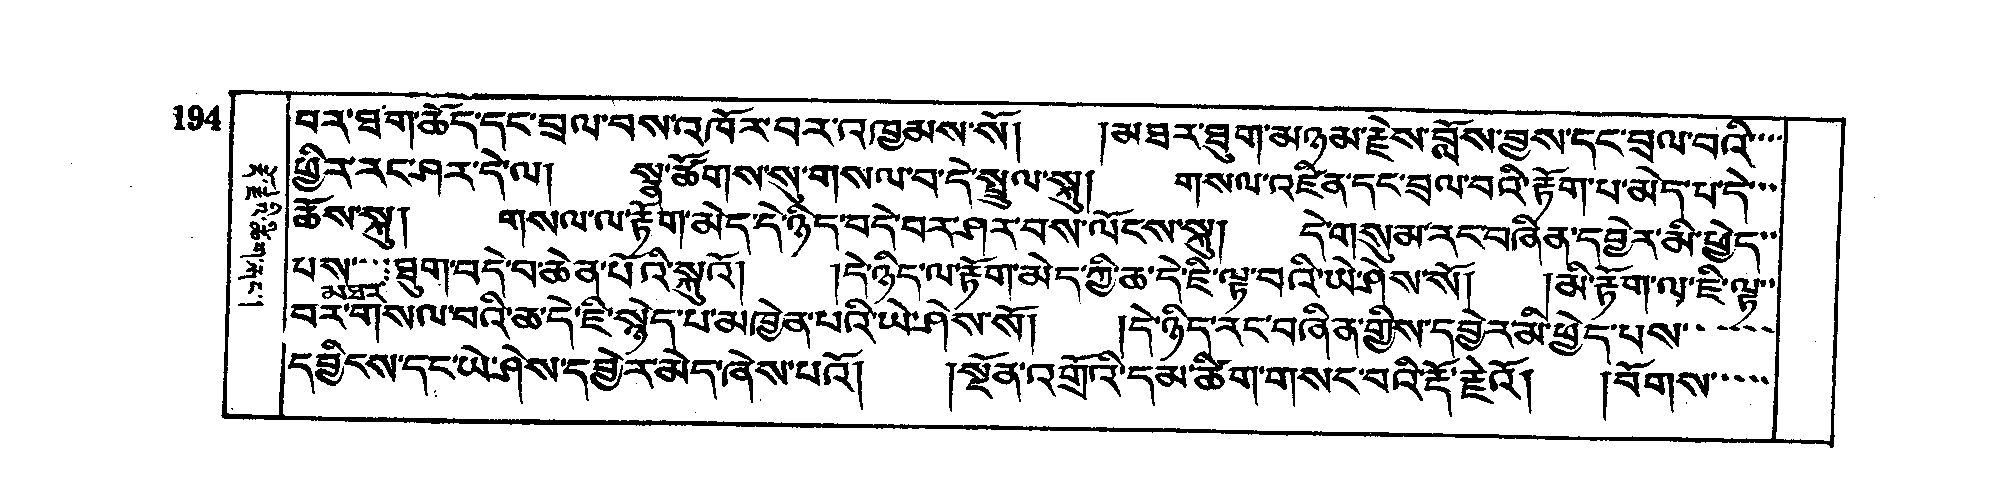 194
བར་ཐག་ཆོད་དང་བྲལ་བས་འཁོར་བར་འཁྱམས་སོ། །མཐར་ཐུག་མཉམ་རྗེས་བློས་བྱས་དང་བྲལ་བའི་
ཕྱིར་རང་ཤར་དེ་ལ། སྣ་ཚོགས་སུ་གསལ་བ་དེ་སྤྲུལ་སྐུ། གསལ་འཛིན་དང་བྲལ་བའི་རྟོག་པ་མེད་པ་དེ་
ཆོས་སྐུ། གསལ་ལ་རྟོག་མེད་དེ་ཉིད་བདེ་བར་ཤར་བས་ལོངས་སྐུ། དེ་གསུམ་རང་བཞིན་དབྱེར་མི་ཕྱེད་
པས་མཐར་ཐུག་བདེ་བ་ཆེན་པོའི་སྐུའོ། །དེ་ཉིད་ལ་རྟོག་མེད་ཀྱི་ཆ་དེ་ཇི་ལྟ་བའི་ཡེ་ཤེས་སོ། །མི་རྟོག་ལ་ཇི་ལྟ་
བར་གསལ་བའི་ཆ་དེ་ཇི་སྙེད་པ་མཁྱེན་པའི་ཡེ་ཤེས་སོ། །དེ་ཉིད་རང་བཞིན་གྱིས་དབྱེར་མི་ཕྱེད་པས་
དབྱིངས་དང་ཡེ་ཤེས་དབྱེར་མེད་ཞེས་པའོ། །སྔོན་འགྲོའི་དམ་ཚིག་གསང་བའི་རྡོ་རྗེའོ། །བོགས་